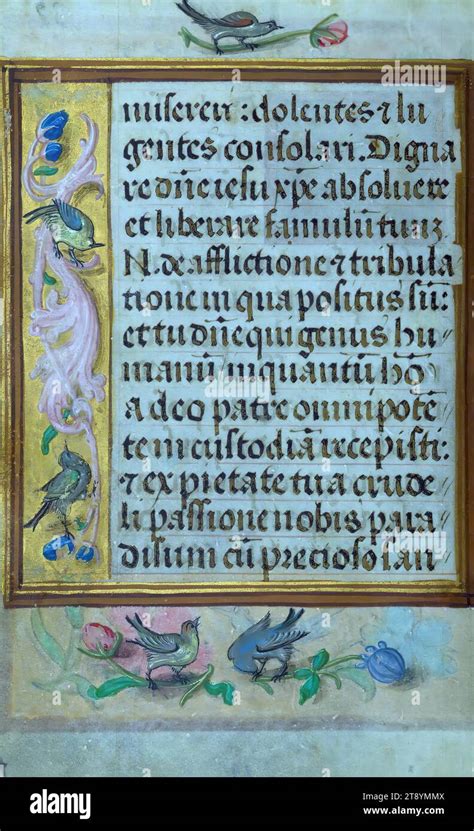 miserer̄: dolentes ⁊ lu
gentes consolari. Digna
re dn̄e iesu xp̄e absoluere
et liberare famulū tuuȝ
N. de afflictione ⁊ tribula
tione in qua positus sū:
et tu dn̄e qui genus hu
manū inquantū hō
a deo patre omnipotē
te in custodiā recepisti:
⁊ ex pietate tua crude
li passione nobis para
disum cū precioso san
alamy
a
alamy
Image ID: 2T8YMMX
www.alamy.com